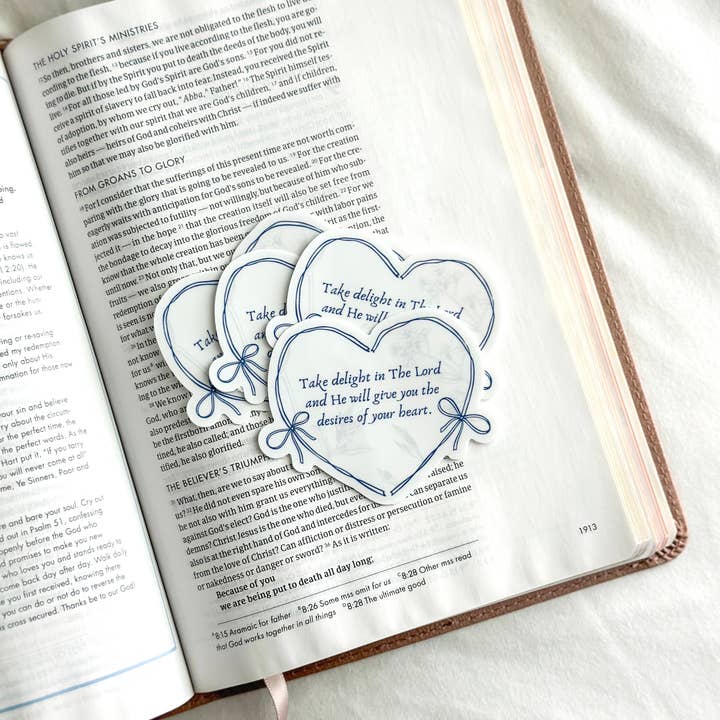 ping,
vast
is flawed
knows us
1 2:20). He
including our
entions. Whether
e or the hun-
forsakes us.
ring or re-saving
med my redemption
only about His
mnation for those now
ur sin and believe
rry about the circum-
r the perfect time, the
the perfect words. As the
Hart put it, "If you tarry
u will never come at all"
e, Ye Sinners, Poor and
re and bare your soul. Cry out
d out in Psalm 51, confessing
openly before the God who
d promises to make you new
who loves you and stands ready to
come back day after day. Walk daily
e you first received, knowing there
you can do or not do to reverse the
cross secured. Thanks be to our God!
THE HOLY SPIRIT'S MINISTRIES
12 So then, brothers and sisters, we are not obligated to the flesh to live
cording to the flesh, 13 because if you live according to the flesh, you are go-
ing to die. But if by the Spirit you put to death the deeds of the body, you will
live. 14 For all those led by God's Spirit are God's sons. 15 For you did not re-
ceive a spirit of slavery to fall back into fear. Instead, you received the Spirit
of adoption, by whom we cry out, "Abba, Father!" 16 The Spirit himself tes-
tifies together with our spirit that we are God's children, 17 and if children,
also heirs — heirs of God and coheirs with Christ — if indeed we suffer with
him so that we may also be glorified with him.
FROM GROANS TO GLORY
18 For I consider that the sufferings of this present time are not worth com-
paring with the glory that is going to be revealed to us. 19 For the creation
eagerly waits with anticipation for God's sons to be revealed. 20 For the crea-
ation was subjected to futility — not willingly, but because of him who sub-
jected it — in the hope 21 that the creation itself will also be set free from
the bondage to decay into the glorious freedom of God's children. 22 For we
know that the whole creation has been with labor pains
until now. 23 Not only that, but we if as the first-
fruits — we also
redemption of
is seen is no
for what
26 In the
not know
for us
knows the
ing to the
28 We know
God, who are
also predes
the firstborn among
tined, he also called; and those
tified, he also glorified.
THE BELIEVER'S TRIUMPH
31 What, then, are we to say about
us? 32 He did not even spare his own Son
he not also with him grant us everything
against God's elect? God is the one who justif
demns? Christ Jesus is the one who died, but even
also is at the right hand of God and intercedes for us. can separate us
from the love of Christ? Can affliction or distress or persecution or famine
or nakedness or danger or sword? 36 As it is written:
Because of you
we are being put to death all day long;
a 8:15 Aramaic for father b 8:26 Some mss omit for us c 8:28 Other mss read
that God works together in all things d 8:28 The ultimate good
1913
Take delight in The Lord
and He will
Take d
and
Tak
Take delight in The Lord
and He will give you the
desires of your heart.